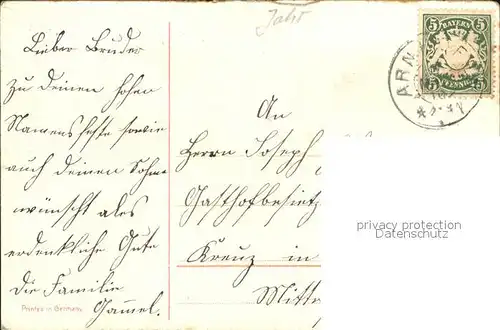 Jahr
Lieber Bruder
zu deinem hohen
Namensfeste sowie
auch deinen Sohne
wünscht alles
erdenkliche Gute
die Familie
Printed in Germany.
5 BAYERN 5
5 PFENNIG 5
ARN
An
Herrn Joseph
Gasthofbesitz
Kreuz in
Mitt
privacy protection
Datenschutz